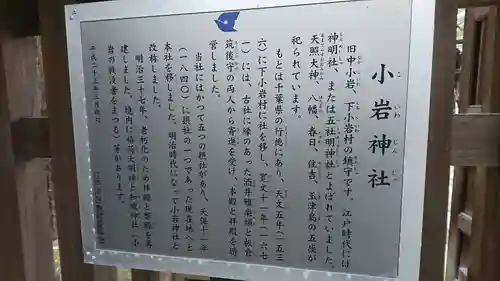 小岩神社
こいわじんじゃ
旧中小岩、下小岩村の鎮守です。江戸時代には
神明社、または五社明神社とよばれていました。
天照大神、八幡、春日、住吉、玉津島の五座が
祀られています。
もとは千葉県の行徳にあり、天文五年(一五三
六)に下小岩村に社を移し、寛文十一年(一六七
一)には、古社に縁のあった酒井雅楽頭と板倉
筑後守の両人から寄進を受け、本殿と拝殿を造
営しました。
当社にはかつて五つの摂社があり、天保十一年
(一八四〇)に摂社の一つであった現在地へと
本社を移しました。明治時代になって小岩神社と
改称しました。
明治三十七年、老朽化のため拝殿と弊殿を再
建しました。境内に稲荷大明神と和魂神社(小
岩の戦没者をまつる)等があります。
平成二十三年三月